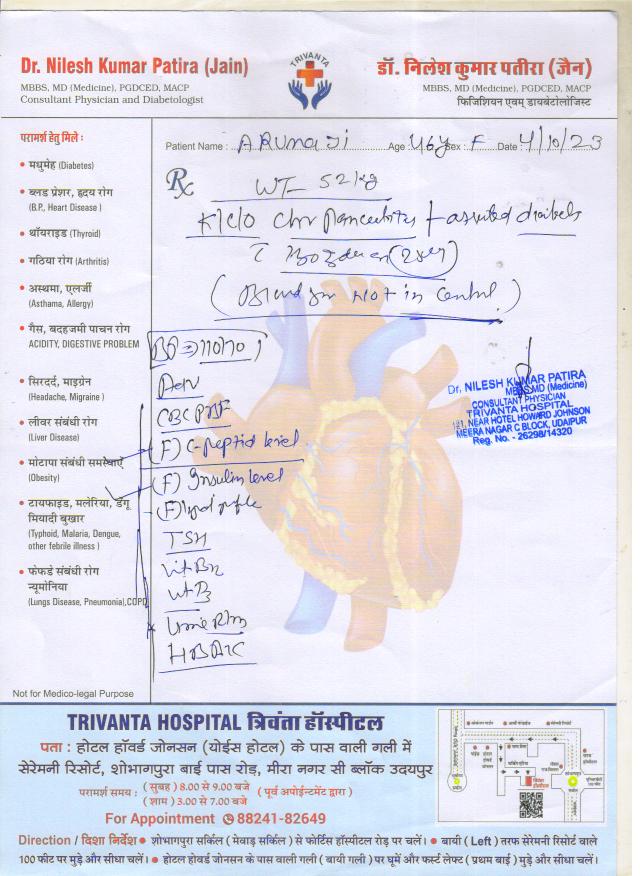 Dr. Nilesh Kumar Patira (Jain)
MBBS, MD (Medicine), PGDCED, MACP
Consultant Physician and Diabetologist
TRIVANTA
डॉ. निलेश कुमार पतीरा (जैन)
MBBS, MD (Medicine), PGDCED, MACP
फिजिशियन एवम् डायबेटोलॉजिस्ट
परामर्श हेतु मिले :
• मधुमेह (Diabetes)
• ब्लड प्रेशर, हृदय रोग
(B.P., Heart Disease )
• थॉयराइड (Thyroid)
• गठिया रोग (Arthritis)
• अस्थमा, एलर्जी
(Asthama, Allergy)
• गैस, बदहजमी पाचन रोग
ACIDITY, DIGESTIVE PROBLEM
• सिरदर्द, माइग्रेन
(Headache, Migraine )
• लीवर संबंधी रोग
(Liver Disease)
• मोटापा संबंधी समस्याऐं
(Obesity)
• टायफाइड, मलेरिया, डेंगू
मियादी बुखार
(Typhoid, Malaria, Dengue,
other febrile illness )
• फेफडे संबंधी रोग
न्यूमोनिया
(Lungs Disease, Pneumonia),COPD
Not for Medico-legal Purpose
Patient Name : ARUNA JI Age : 46y Sex : F Date : 4/10/23
Rx
WT- 52 kg
K/C/O Chr Pancreatitis +
(
Not in Control )
BP => 110/70
Adv
CBC
(F) C-Peptid level
(F) Insulin level
(F) lipid profile
TSH
Vit B12
Vit D3
Urine R/m
HBA1C
Dr. NILESH KUMAR PATIRA
MBBS,MD (Medicine)
CONSULTANT PHYSICIAN
TRIVANTA HOSPITAL
121, NEAR HOTEL HOWARD JOHNSON
MEERA NAGAR C BLOCK, UDAIPUR
Reg. No. - 26298/14320
TRIVANTA HOSPITAL त्रिवंता हॉस्पीटल
पता : होटल हॉवर्ड जोनसन (योईस होटल) के पास वाली गली में
सेरेमनी रिसोर्ट, शोभागपुरा बाई पास रोड़, मीरा नगर सी ब्लॉक उदयपुर
परामर्श समय : ( सुबह ) 8.00 से 9.00 बजे
( शाम ) 3.00 से 7.00 बजे
( पूर्व अपोईन्टमेंट द्वारा )
For Appointment 88241-82649
Direction / दिशा निर्देश • शोभागपुरा सर्किल ( मेवाड़ सर्किल ) से फोर्टिस हॉस्पीटल रोड़ पर चलें। • बायी ( Left ) तरफ सेरेमनी रिसोर्ट वाले
100 फीट पर मुड़े और सीधा चलें। • होटल हॉवर्ड जोनसन के पास वाली गली ( बायी गली ) पर घूमें और फर्स्ट लेफ्ट ( प्रथम बाई ) मुड़े और सीधा चलें।